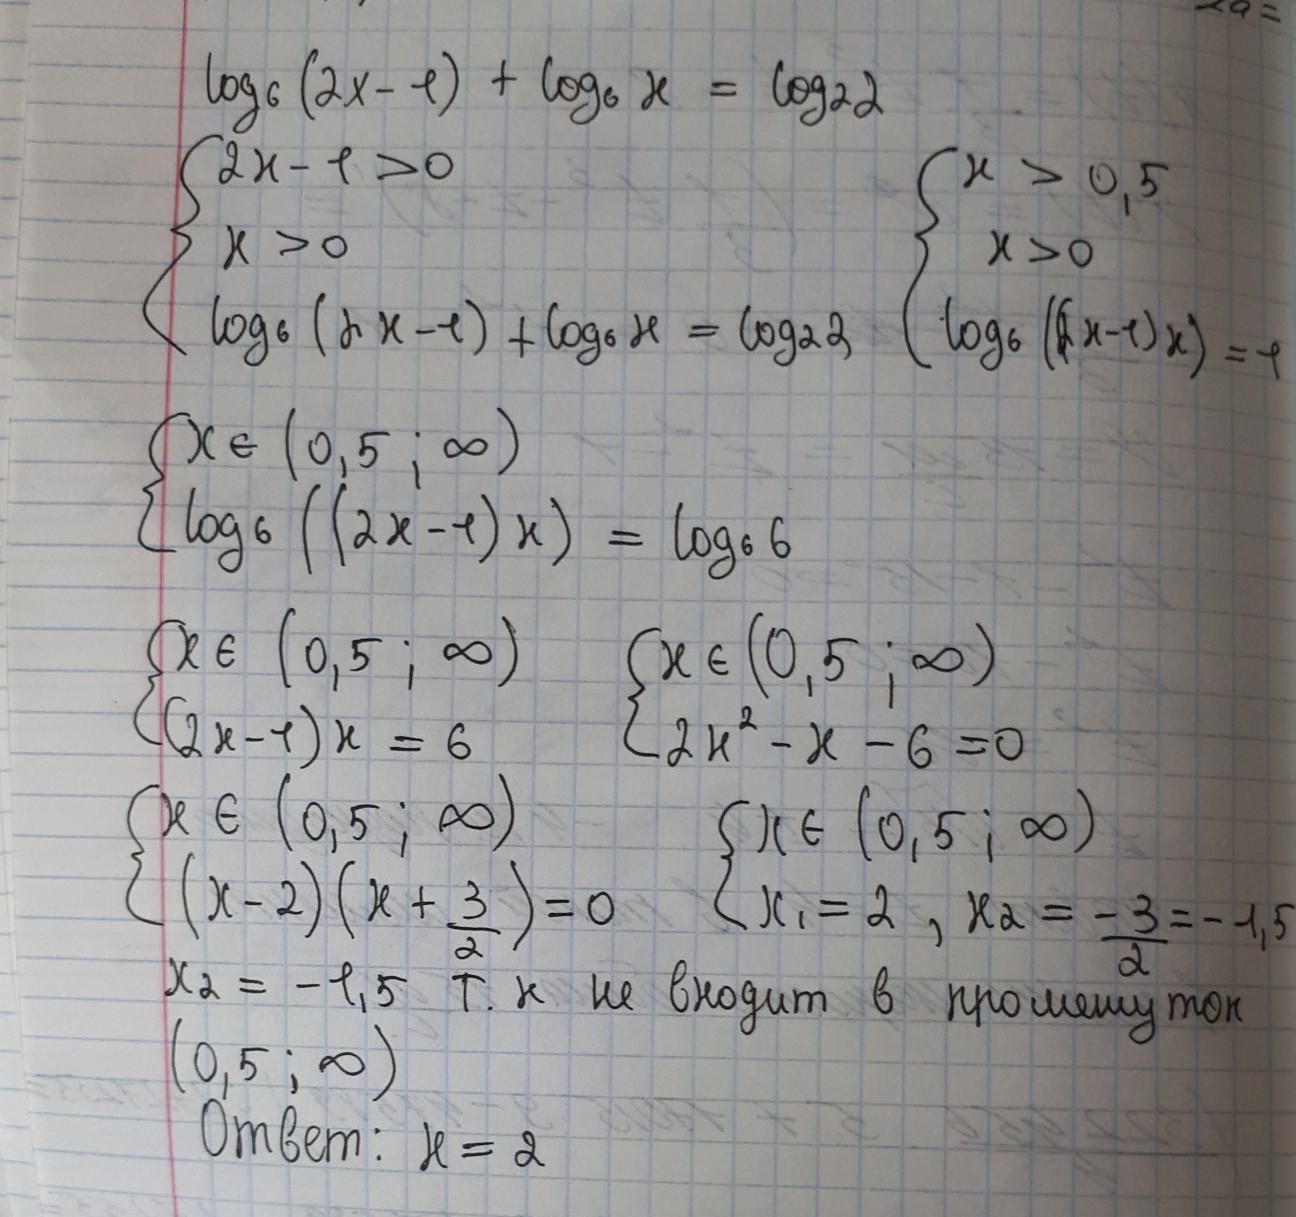 log₆(2x-1) + log₆ x = log₂2
{ 2x-1>0 { x > 0,5
x >0 x>0
log₆(2x-1) + log₆x = log₂2 log₆((2x-1)x) = 1
{ x ∈ (0,5 ; ∞)
log₆((2x-1)x) = log₆6
{ x ∈ (0,5 ; ∞) { x ∈ (0,5 ; ∞)
(2x-1)x = 6 2x² - x - 6 =0
{ x ∈ (0,5 ; ∞) { x ∈ (0,5 ; ∞)
(x-2)(x + 3/2) = 0 x₁ = 2 , x₂ = -3/2 = -1,5
x₂ = -1,5 т.к не входит в промежуток
(0,5 ; ∞)
Ответ: x = 2